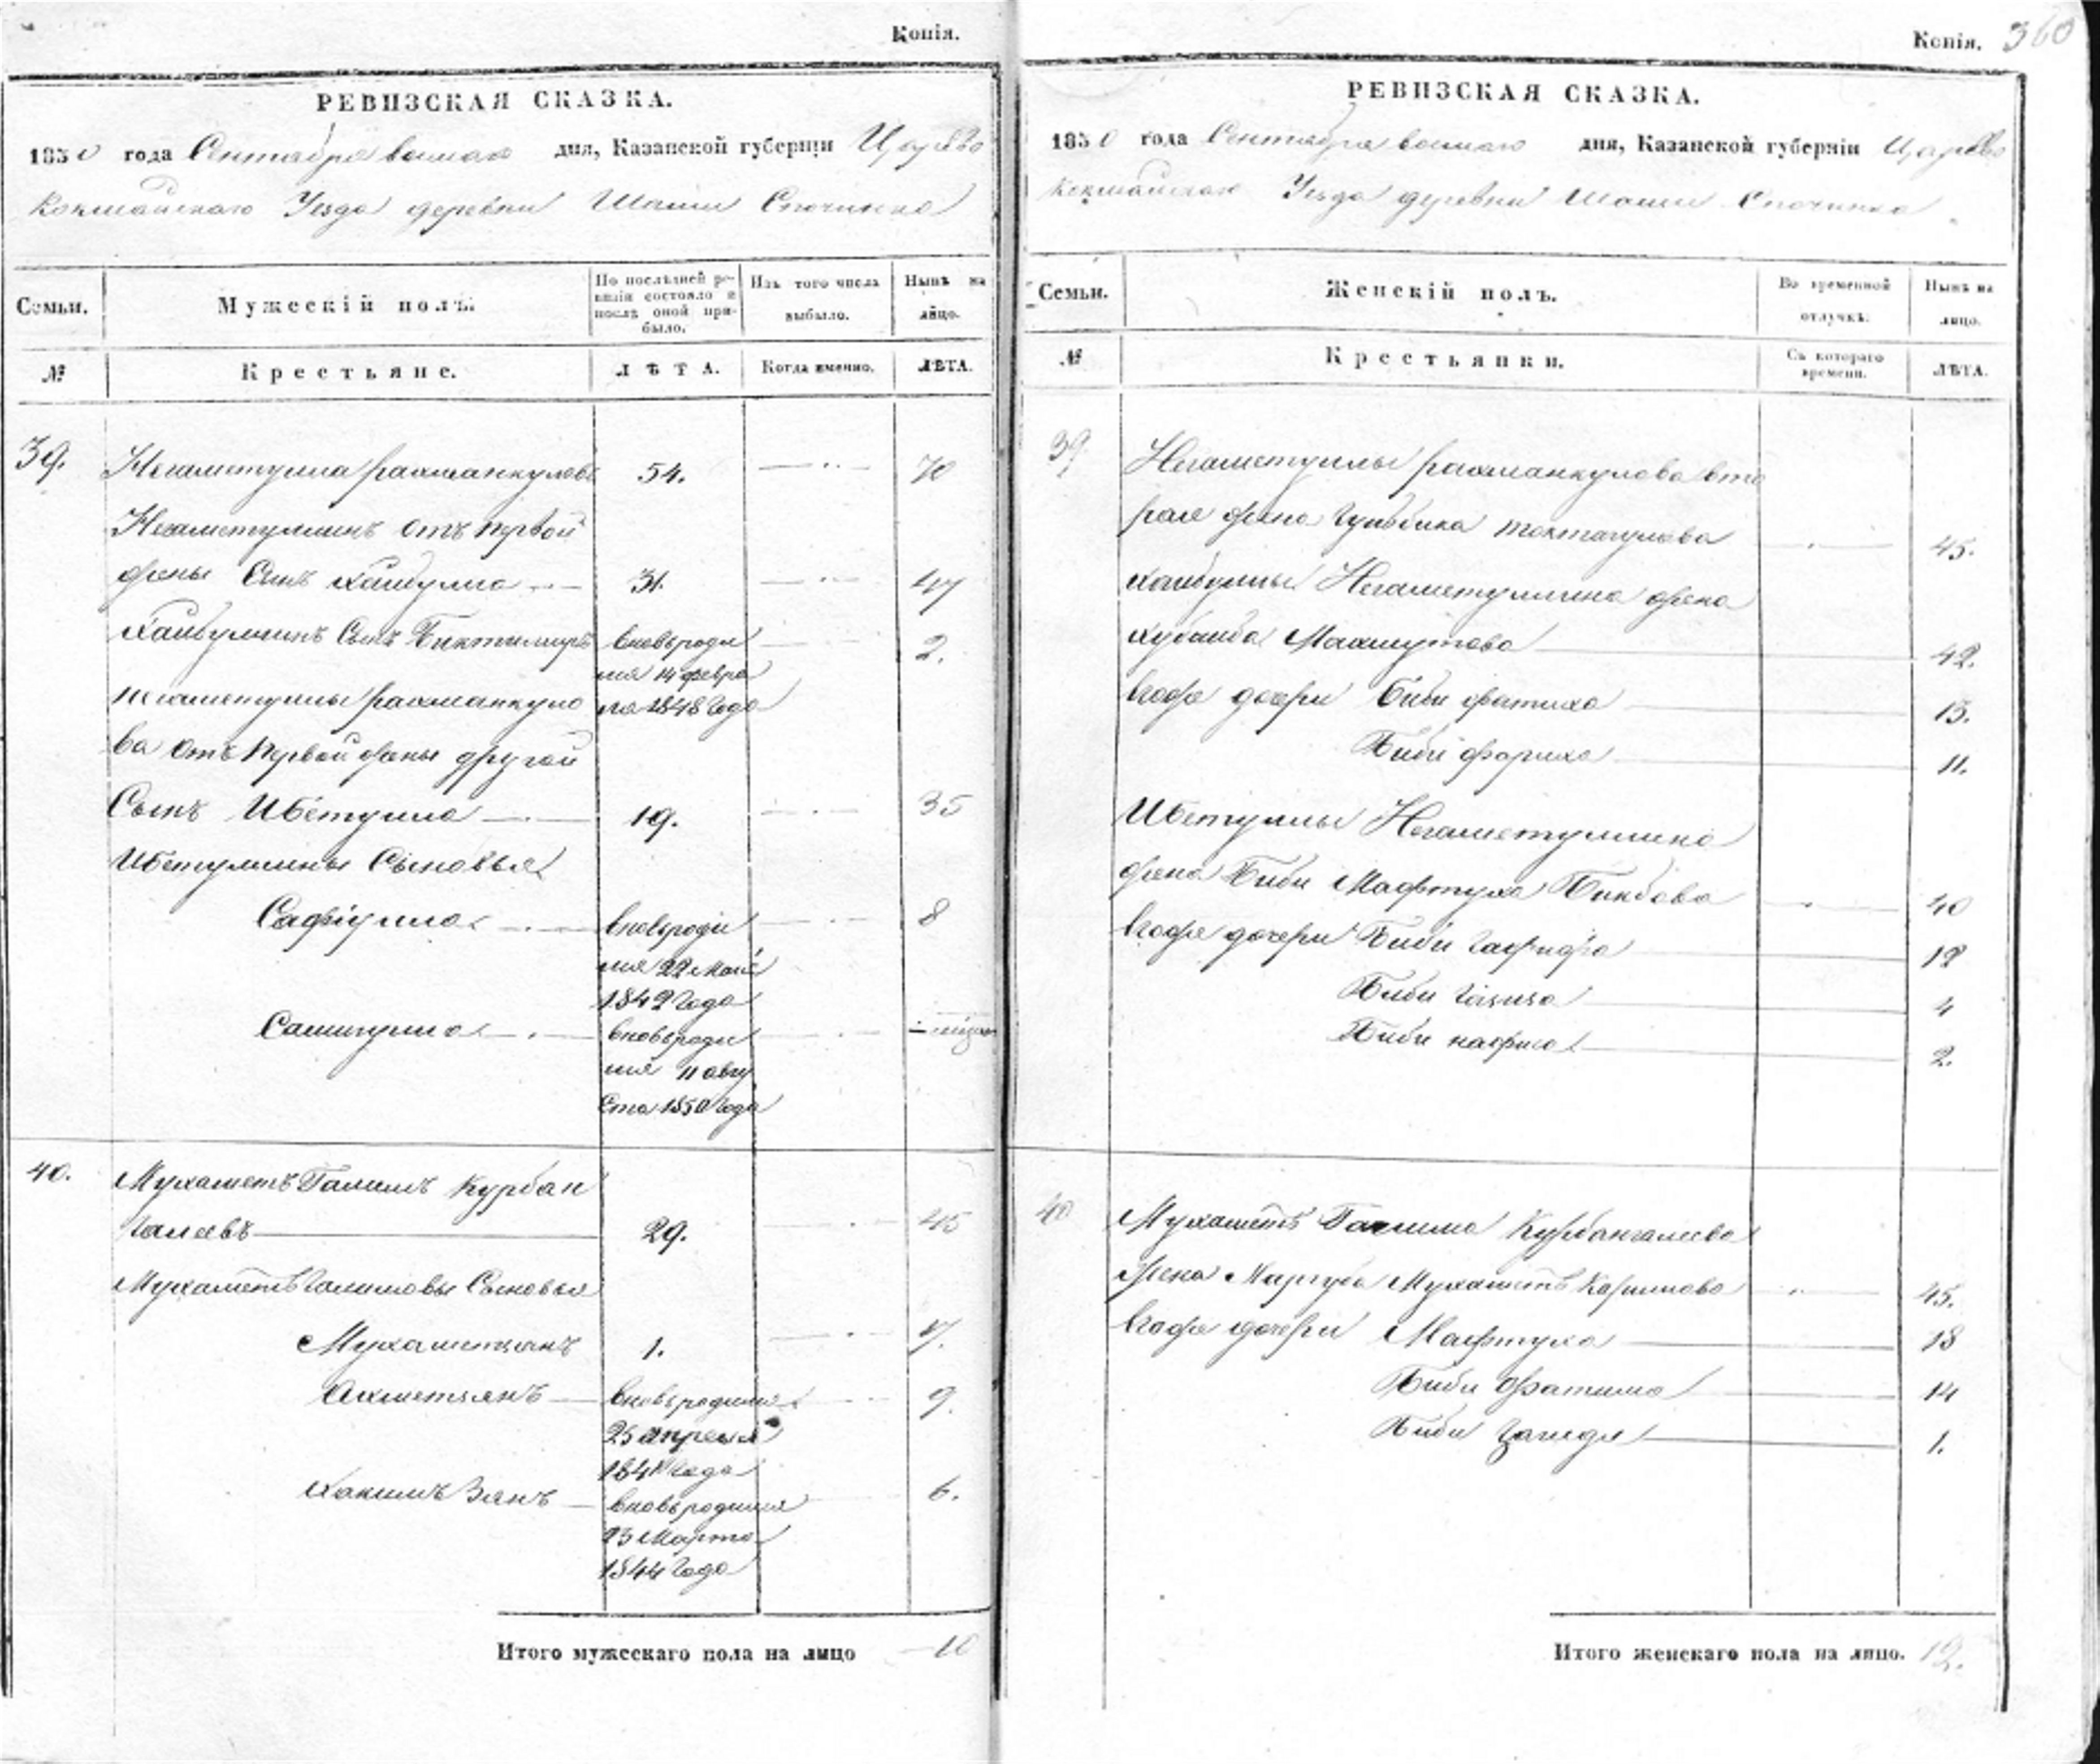 Копія.
РЕВИЗСКАЯ СКАЗКА.
1850 года Сентября дня, Казанской губерніи Царево
Кокшайскаго Уезда деревни Шаши
Семьи.
Мужескій полъ.
По послѣдней ре-
визіи состояло и
послѣ оной при-
было.
Изъ того числа
выбыло.
Нынѣ на
лицо.
№
Крестьяне.
ЛѢТА.
Когда именно.
ЛѢТА.
39. Негаметулла рахманкуловъ 54. 70
Негаметуллинъ отъ первой
жены Сынъ хайбулла 31. 47
Хайбуллинъ Сынъ Биктимиръ вновьроди 2.
лся 14 февра
негаметуллы рахманкуло ля 1848 Года
ва отъ первой жены другой
Сынъ Ибетулла 19. 35
Ибетуллины Сыновья
Сафіулла вновьроди 8
лся 22 Маія
1842 Года
Самигулла вновьроди
лся 11 авгу
ста 1850 Года
40. Мухаметъ Галимъ Курбан
Галеевъ 29. 45
Мухаметъ Галимовы Сыновья
Мухаметзянъ 1. 17.
Ахметзянъ вновьродился 9.
25 апреля
1841 Года
Хакимъ Зянъ вновьродился 6.
23 Марта
1844 Года
Итого мужескаго пола на лицо 10
Копія. 360
РЕВИЗСКАЯ СКАЗКА.
1850 года Сентября дня, Казанской губерніи Царево
Кокшайскаго Уезда деревни Шаши
Семьи.
Женскій полъ.
Во временной
отлучкѣ.
Нынѣ на
лицо.
№
Крестьянки.
Съ котораго
времени.
ЛѢТА.
39 Негаметуллы рахманкулова вто
рая жена Гульбика токтагулова 45.
хайбуллы Негаметуллина жена
хубайба Махмутова 42.
Егоже дочери Биби фатиха 13.
Биби фариха 11.
Ибетуллы Негаметуллина
жена Биби Мафтуха Бикбова 40
Егоже дочери Биби Гафифа 12
Биби Газиза 4
Биби нафиса 2.
40 Мухаметъ Галима Курбангалеева
жена Маргуба Мухаметъ Каримова 45.
Егоже дочери Мафтуха 18
Биби Фатима 14
Биби 1.
Итого женскаго пола на лицо. 12.